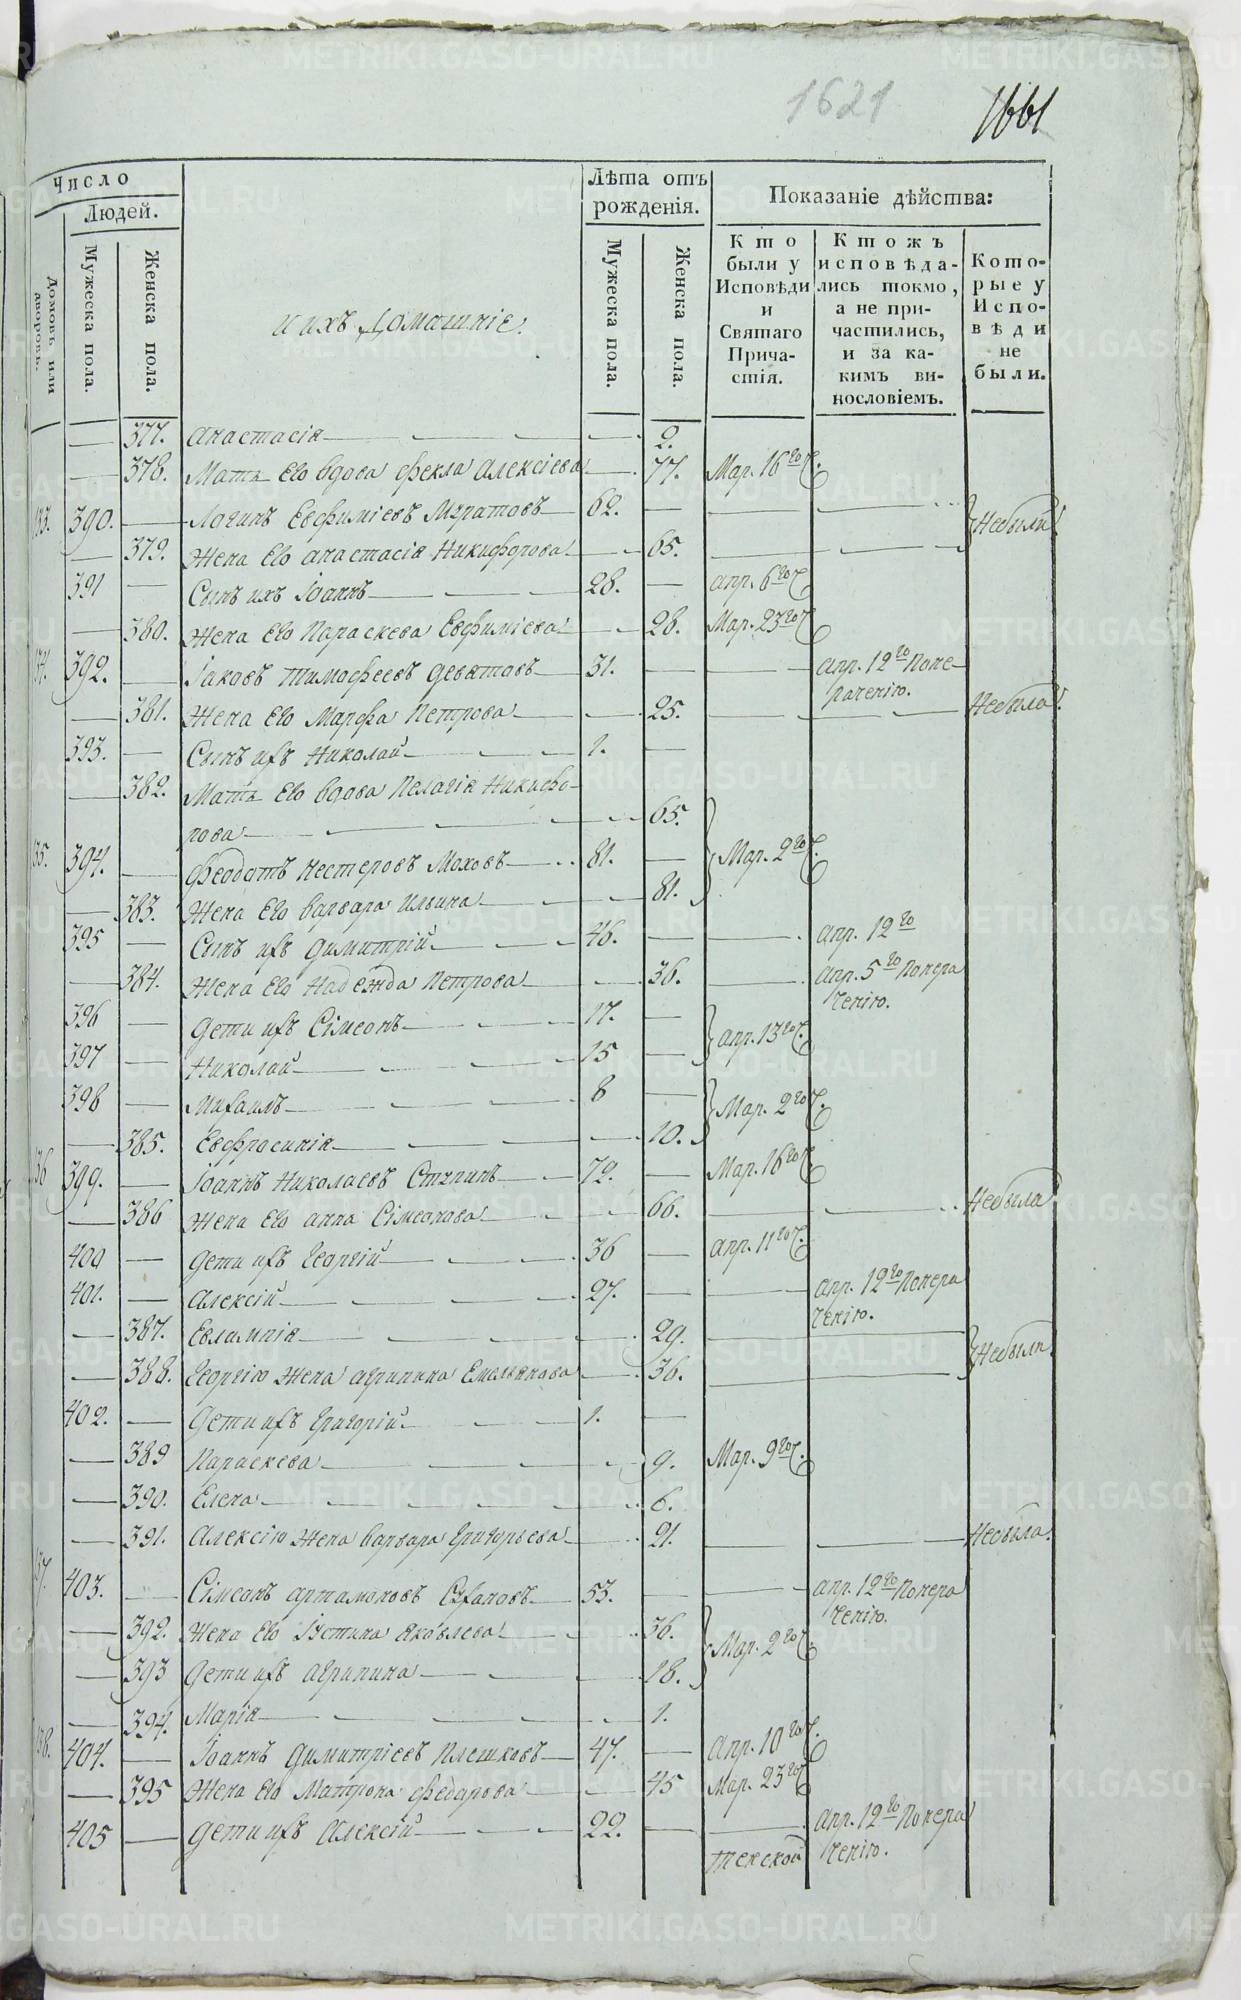 1621
1661
Число
Людей.
Домовъ или дворовъ.
Мужеска пола.
Женска пола.
и ихъ домашніе.
Лѣта отъ рожденія.
Мужеска пола.
Женска пола.
Показаніе дѣйства:
Кто были у Исповѣди и Святаго Причастія.
Ктожъ исповѣдались токмо, а не причастились, и за какимъ винословіемъ.
Которые у Исповѣди не были.
377. Анастасія 2.
378. Мать его вдова Фекла Алексіева 77. Мар. 16го
133. 390. Логинъ Евфиміевъ 62.
Небыли
379. Жена его Анастасія Никифорова 65.
391 Сынъ ихъ Іоаннъ 28. Апр. 6го
380. Жена его Параскева Евфиміева 28. Мар. 23го
134. 392. Іаковъ Тимофеевъ Девятовъ 31. Апр. 12го Поне-
раченію.
381. Жена его Марфа Петрова 25. Небыла
393. Сынъ ихъ Николай 1.
382. Мать его вдова Пелагія Никифо-
рова 65.
135. 394. Феодотъ Нестеровъ Моховъ 81. Мар. 2го
383. Жена его Варвара Ильина 81.
395 Сынъ ихъ Димитрій 46. Апр. 12го
384. Жена его Надежда Петрова 36. Апр. 5го Понера
ченію.
396 Дети ихъ Сімеонъ 17. Апр. 13го
397 Николай 15
398 Михаилъ 8 Мар. 2го
385. Евфросинія 10.
136 399. Іоаннъ Николаевъ 72. Мар. 16го
386 Жена его Анна Сімеонова 66. Небыла
400 Дети ихъ Георгій 36 Апр. 11го
401. Алексій 27. Апр. 12го Понера
ченію.
387. Евлампія 29. Небыли
388. Георгію жена Агрипина Емельянова 36.
402. Дети ихъ Григорій 1.
389 Параскева 9. Мар. 9го
390. Елена 6.
391. Алексію жена Варвара Григорьева 21. Небыла.
137 403. Сімеонъ Артамоновъ 53. Апр. 12го Понера
ченію.
392. Жена его Іустина Яковлева 36. Мар. 2го
393 Дети ихъ Агрипина 18.
394. Марія 1.
138. 404. Іоаннъ Димитріевъ Плешковъ 47. Апр. 10го
395 Жена его Матрона Федорова 45 Мар. 23го
405 Дети ихъ Алексій 22. Апр. 12го Понера
ченію.
METRIKI.GASO-URAL.RU